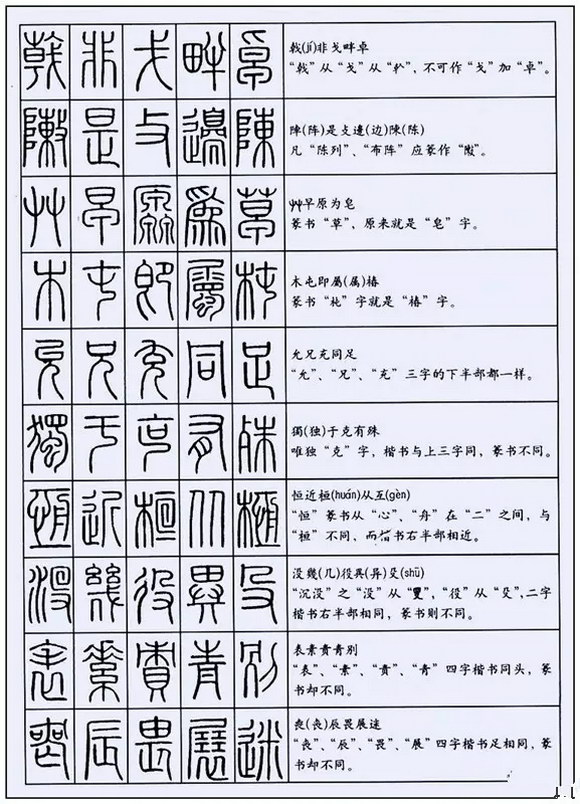 戟(jí)非戈畔卓
“戟”从“戈”从“倝”，不可作“戈”加“卓”。
陣(阵)是攴邊(边)陳(陈)
凡“陈列”、“布阵”应篆作“敶”。
艸早原为皂
篆书“草”、原来就是“皂”字。
木屯即屬(属)椿
篆书“杶”字就是“椿”字。
允兄充同足
“允”、“兄”、“充”三字的下半部都一样。
獨(独)于克有殊
唯独“克”字，楷书与上三字同，篆书不同。
恒近桓(huán)从亙(gèn)
“恒”篆书从“心”、“舟”在“二”之间，与
“桓”不同、而楷书右半部相近。
没幾(几)役異(异)殳(shū)
“沉没”之“没”从“𠬛”，“役”从“殳”,二字
楷书右半部相同，篆书则不同。
表素責青别
“表”、“素”、“責”、“青”四字楷书同头，篆
书却不同。
喪(丧)辰畏展迷
“丧”、“辰”、“畏”、“展”四字楷书足相同，篆
书却不同。